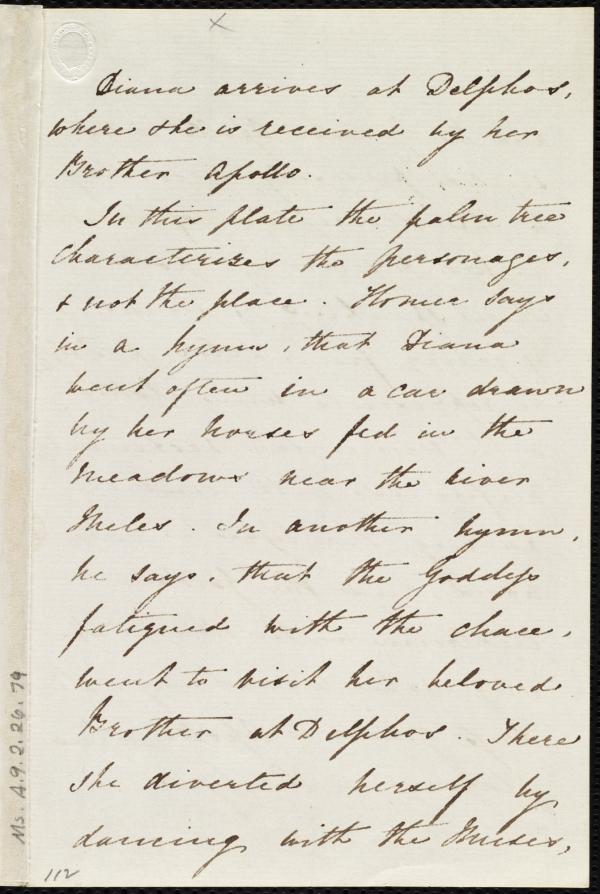 x
Diana arrives at Delphos,
where she is received by her
Brother Apollo.
In this plate the palm tree
characterizes the personages,
& not the place. Homer says
in a hymn, that Diana
went often in a car drawn
by her horses fed in the
meadows near the river
Meles. In another hymn,
he says, that the Goddess
fatigued with the chace,
went to visit her beloved
Brother at Delphos. There
she diverted herself by
dancing with the Muses,
112
Ms. A.9.2.26.79